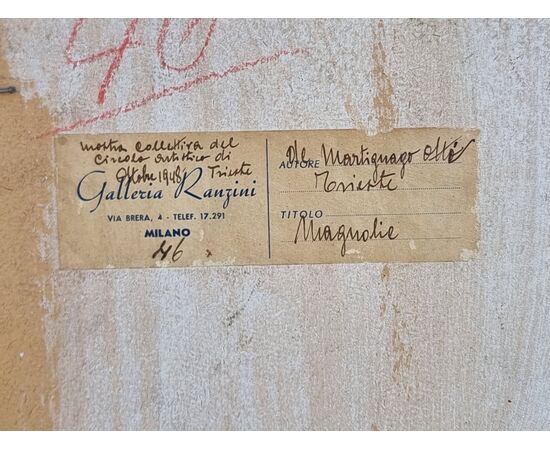 46
mostra collettiva del
circolo artistico di
Ottobre 1948 Trieste
Galleria Ranzini
VIA BRERA, 4 - TELEF. 17.291
MILANO
46
AUTORE De Martignago
Trieste
TITOLO
Magnolie